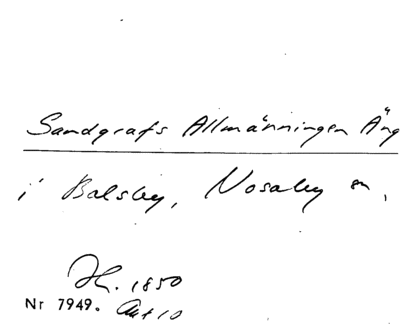 Sandgrafs Allmänningen Äng
i Balsby, Nosaby sn,
1850
Nr 7949. Akt 10